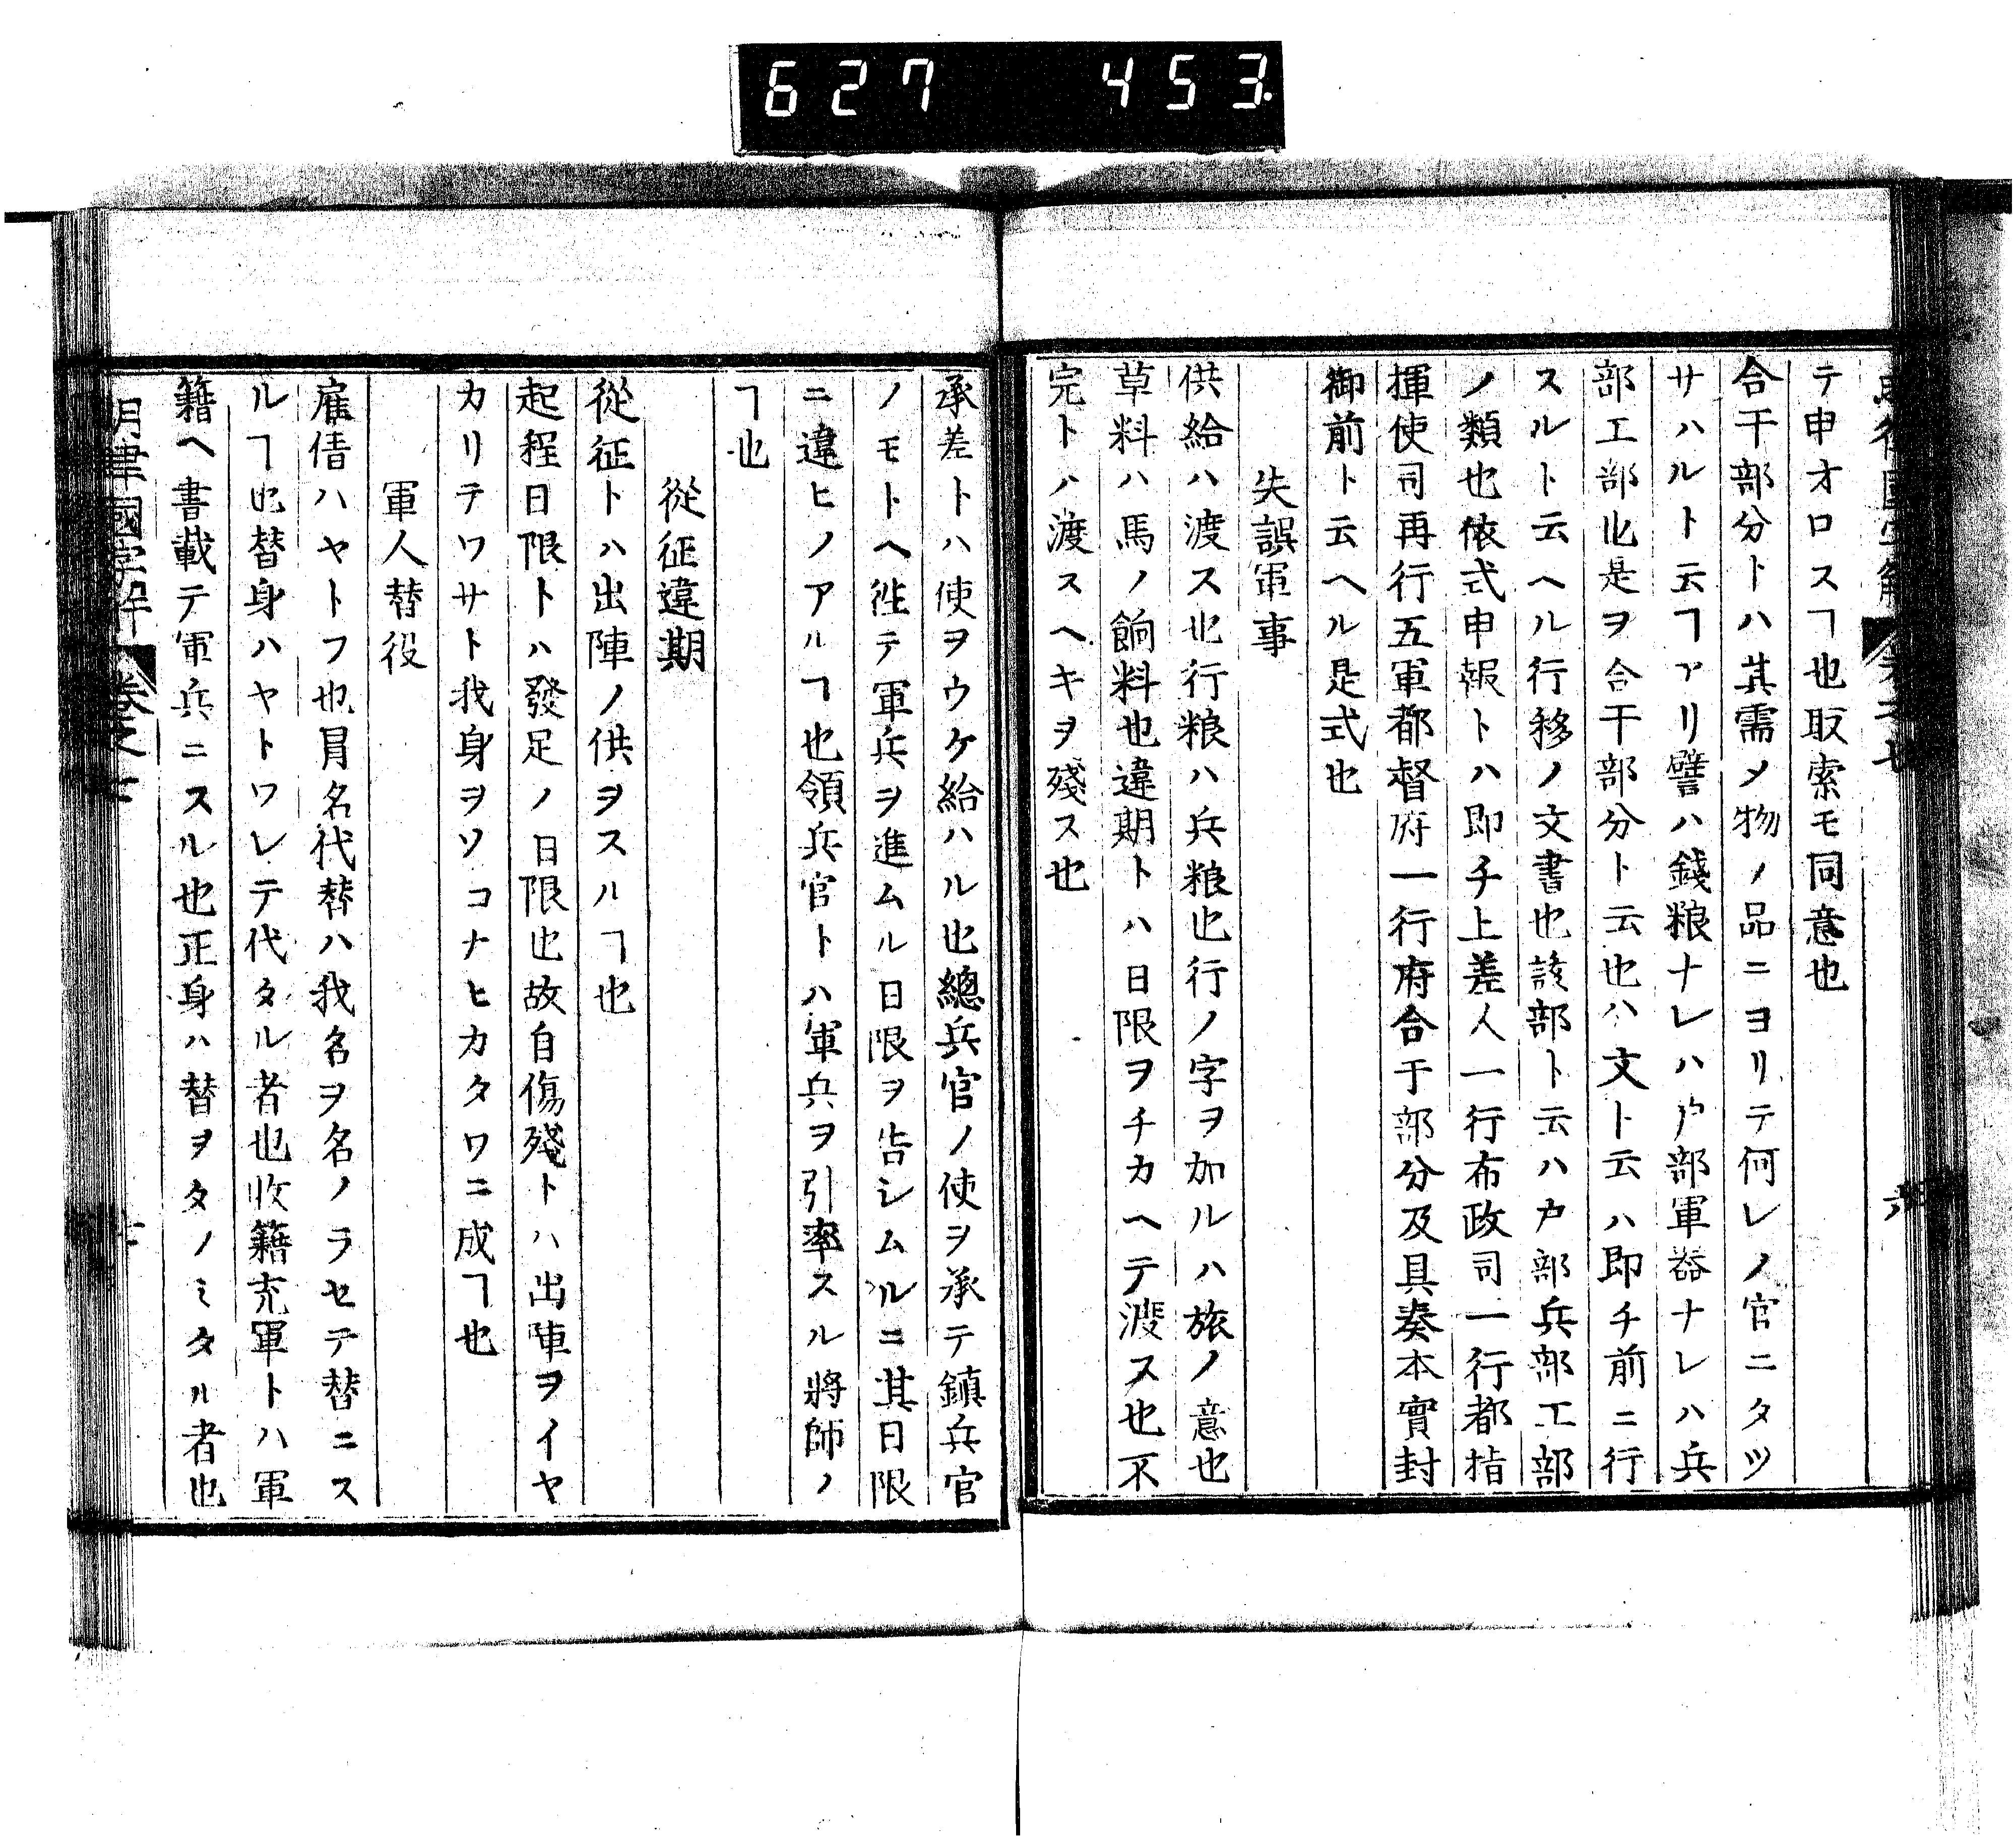 627 453.
テ申オロスヿ也取索モ同意也
合干部分トハ其需メ物ノ品ニヨリテ何レノ官ニタツ
サハルト云ヿアリ譬ハ錢粮ナレハ戸部軍器ナレハ兵
部工部也是ヲ合干部分ト云也ハ文ト云ハ即チ前ニ行
スルト云ヘル行移ノ文書也該部ト云ハ戸部兵部工部
ノ類也依式申報トハ即チ上差人一行布政司一行都指
揮使司再行五軍都督府一行府合于部分及具奏本實封
御前ト云ヘル是式也
失誤軍事
供給ハ渡ス也行粮ハ兵粮也行ノ字ヲ加ルハ旅ノ意也
草料ハ馬ノ餉料也違期トハ日限ヲチカヘテ渡ス也不
完トハ渡スヘキヲ殘ス也
承差トハ使ヲウケ給ハル也總兵官ノ使ヲ承テ鎮兵官
ノモトヘ徃テ軍兵ヲ進ムル日限ヲ告シムルニ其日限
ニ違ヒノアルヿ也領兵官トハ軍兵ヲ引率スル將師ノ
ヿ也
從征違期
從征トハ出陣ノ供ヲスルヿ也
起程日限トハ發足ノ日限也故自傷殘トハ出陣ヲイヤ
カリテワサト我身ヲソコナヒカタワニ成ヿ也
軍人替役
雇借ハヤトフ也冐名代替ハ我名ヲ名ノラセテ替ニス
ルヿ也替身ハヤトワレテ代タル者也收籍充軍トハ軍
籍ヘ書載テ軍兵ニスル也正身ハ替ヲタノミタル者也
明律國字解 卷之七 七